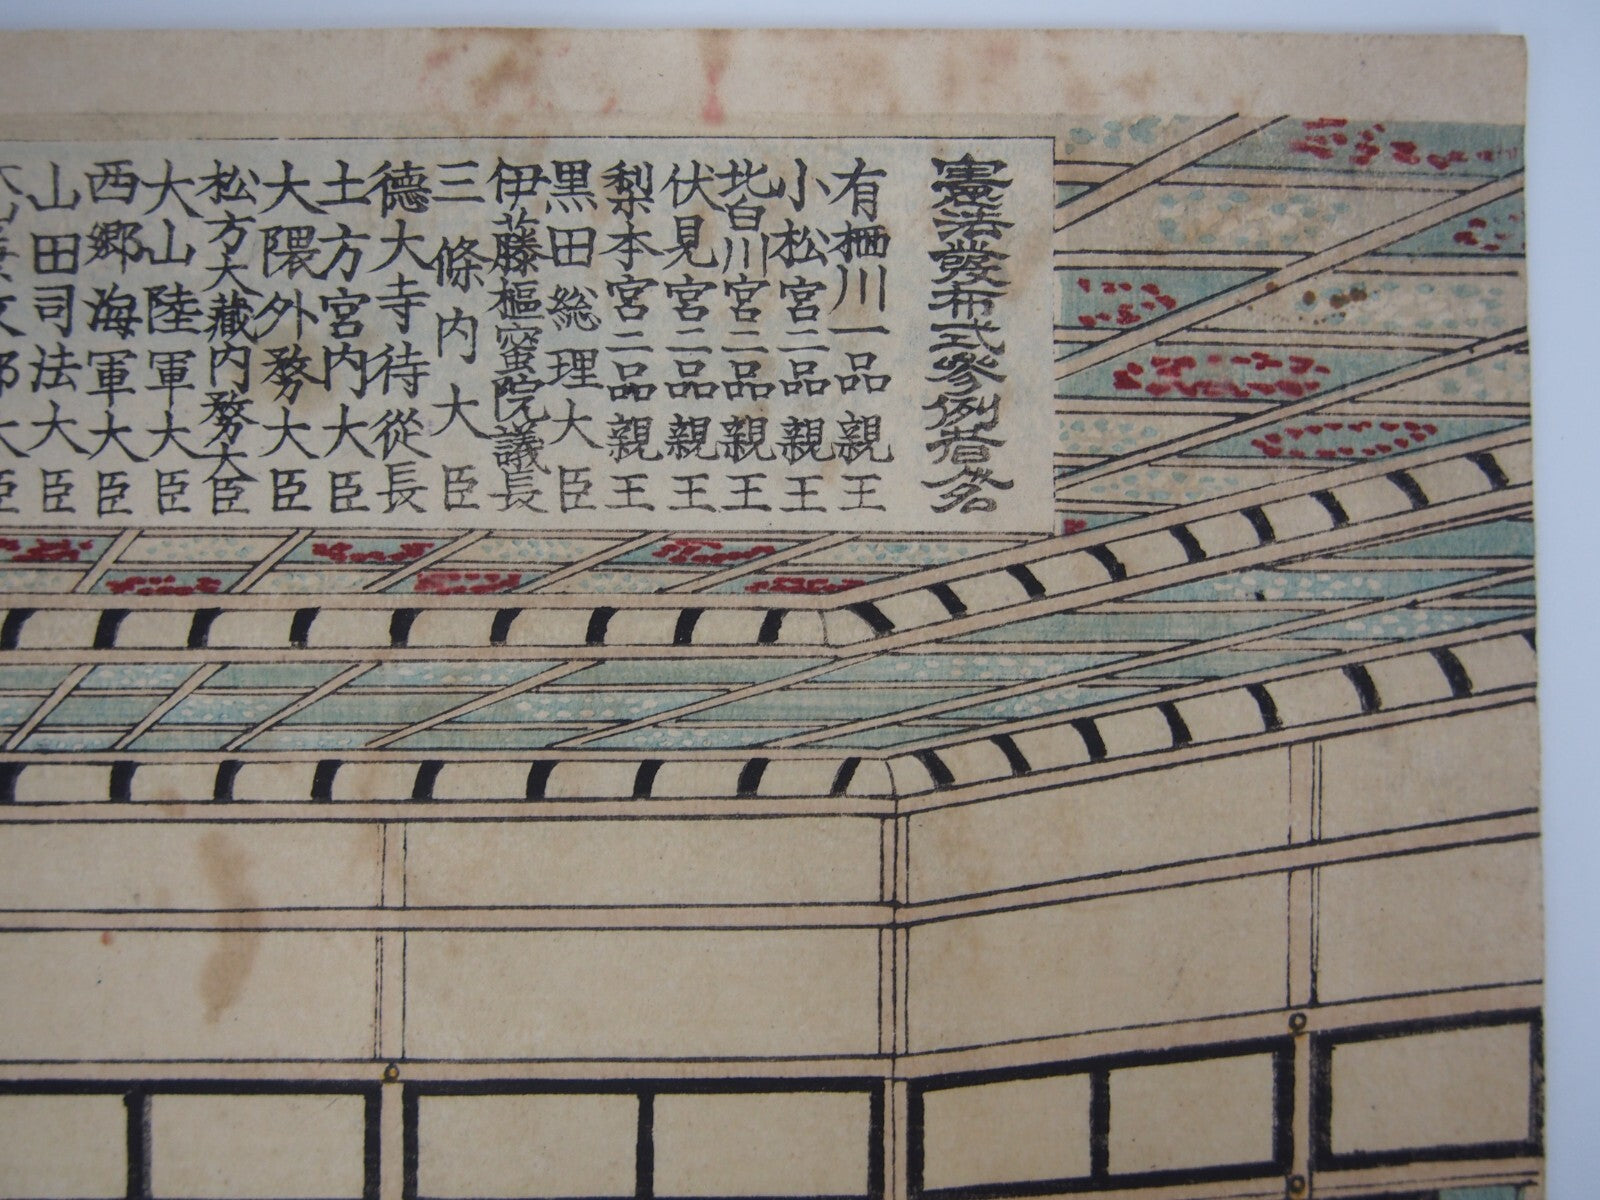 憲法發布式參例者名
有栖川一品親王
小松宮二品親王
北白川宮三品親王
伏見宮二品親王
梨本宮二品親王
黒田総理大臣
伊藤樞密院議長
三條内大臣
德大寺待從長
土方宮内大臣
大隈外務大臣
松方大藏内務大臣
大山陸軍大臣
西郷海軍大臣
山田司法大臣